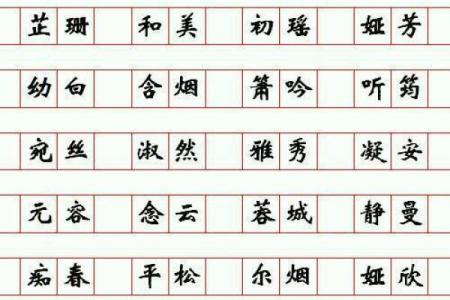 芷珊 和美 初瑶 娅芳
幼白 含烟 箫吟 听筠
宛丝 淑然 雅秀 凝安
元容 念云 蓉城 静曼
痴春 平松 尔烟 娅欣